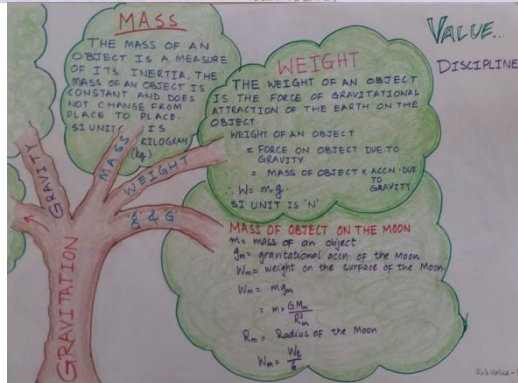 MASS
THE MASS OF AN
OBJECT IS A MEASURE
OF ITS INERTIA. THE
MASS OF AN OBJECT IS
CONSTANT AND DOES
NOT CHANGE FROM
PLACE TO PLACE.
SI UNIT IS
KILOGRAM
(kg)
VALUE...
DISCIPLINE
WEIGHT
THE WEIGHT OF AN OBJECT
IS THE FORCE OF GRAVITATIONAL
ATTRACTION OF THE EARTH ON THE
OBJECT.
WEIGHT OF AN OBJECT
= FORCE ON OBJECT DUE TO
GRAVITY
= MASS OF OBJECT × ACCN. DUE
TO
GRAVITY
∴ W = mg.
SI UNIT IS 'N'
GRAVITY
MASS
WEIGHT
'g' & 'G'
GRAVITATION
MASS OF OBJECT ON THE MOON
m = mass of an object
gm = gravitational accn. of the Moon
Wm = weight on the surface of the Moon.
Wm = mgm
= m × GMm/R²m
Rm = Radius of the Moon
Wm = We/6